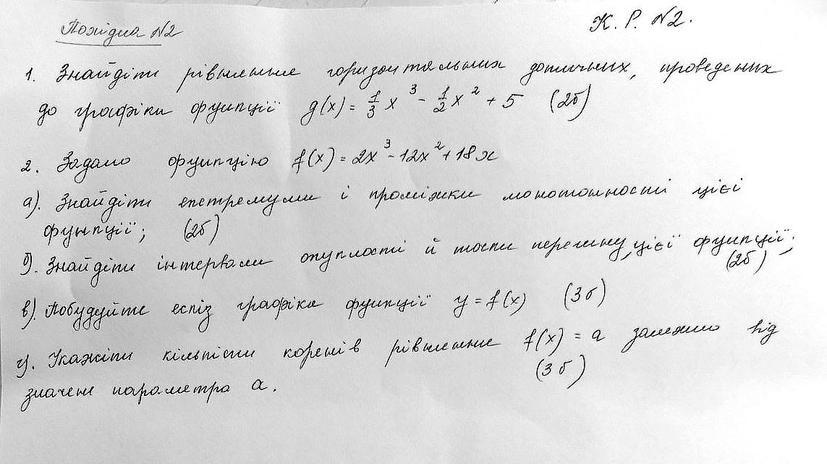 Похідна №2
К. Р. №2.
1. Знайдіть рівняння горизонтальних дотичних, проведених
до графіка функції g(x) = 1/3 x³ - 1/2 x² + 5 (2б)
2. Задано функцію f(x) = 2x³ - 12x² + 18x
а). Знайдіть екстремуми і проміжки монотонності цієї
функції; (2б)
б). Знайдіть інтервали опуклості й точки перегину, цієї функції;
(2б)
в). Побудуйте ескіз графіка функції y = f(x) (3б)
г). Укажіть кількість коренів рівняння f(x) = a залежно від
значень параметра a. (3б)